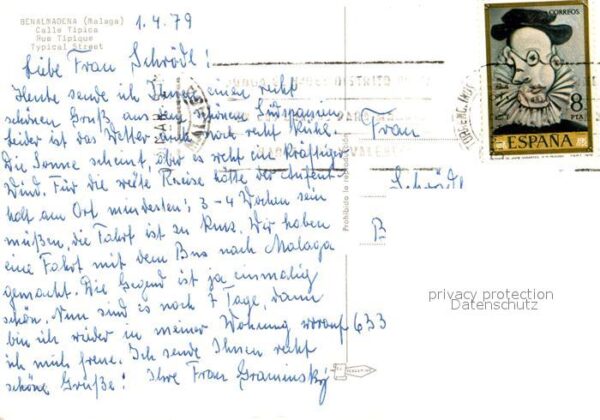 BENALMADENA (Malaga)
Calle Tipica
Rue Tipique
Typical Street
1.4.79
Liebe Frau Schrödl!
Heute sende ich Ihnen einen recht
schönen Gruß aus dem schönen Südspanien
leider ist das Wetter auch noch recht kühl.
Die Sonne scheint, aber es weht ein kräftiger
Wind. Für die weite Reise hätte der Aufent-
halt am Ort mindestens 3-4 Wochen sein
müßen, die Fahrt ist zu kurz. Wir haben
eine Fahrt mit dem Bus nach Malaga
gemacht. Die Gegend ist ja einmalig
schön. Nun sind es noch 7 Tage, dann
bin ich wieder in meiner Wohnung worauf
ich mich freue. Ich sende Ihnen recht
schöne Grüße! Ihre Frau
Frau
Schrödl
B
633
Prohibida la reproducción
CORREOS
8
PTA
ESPAÑA
privacy protection
Datenschutz